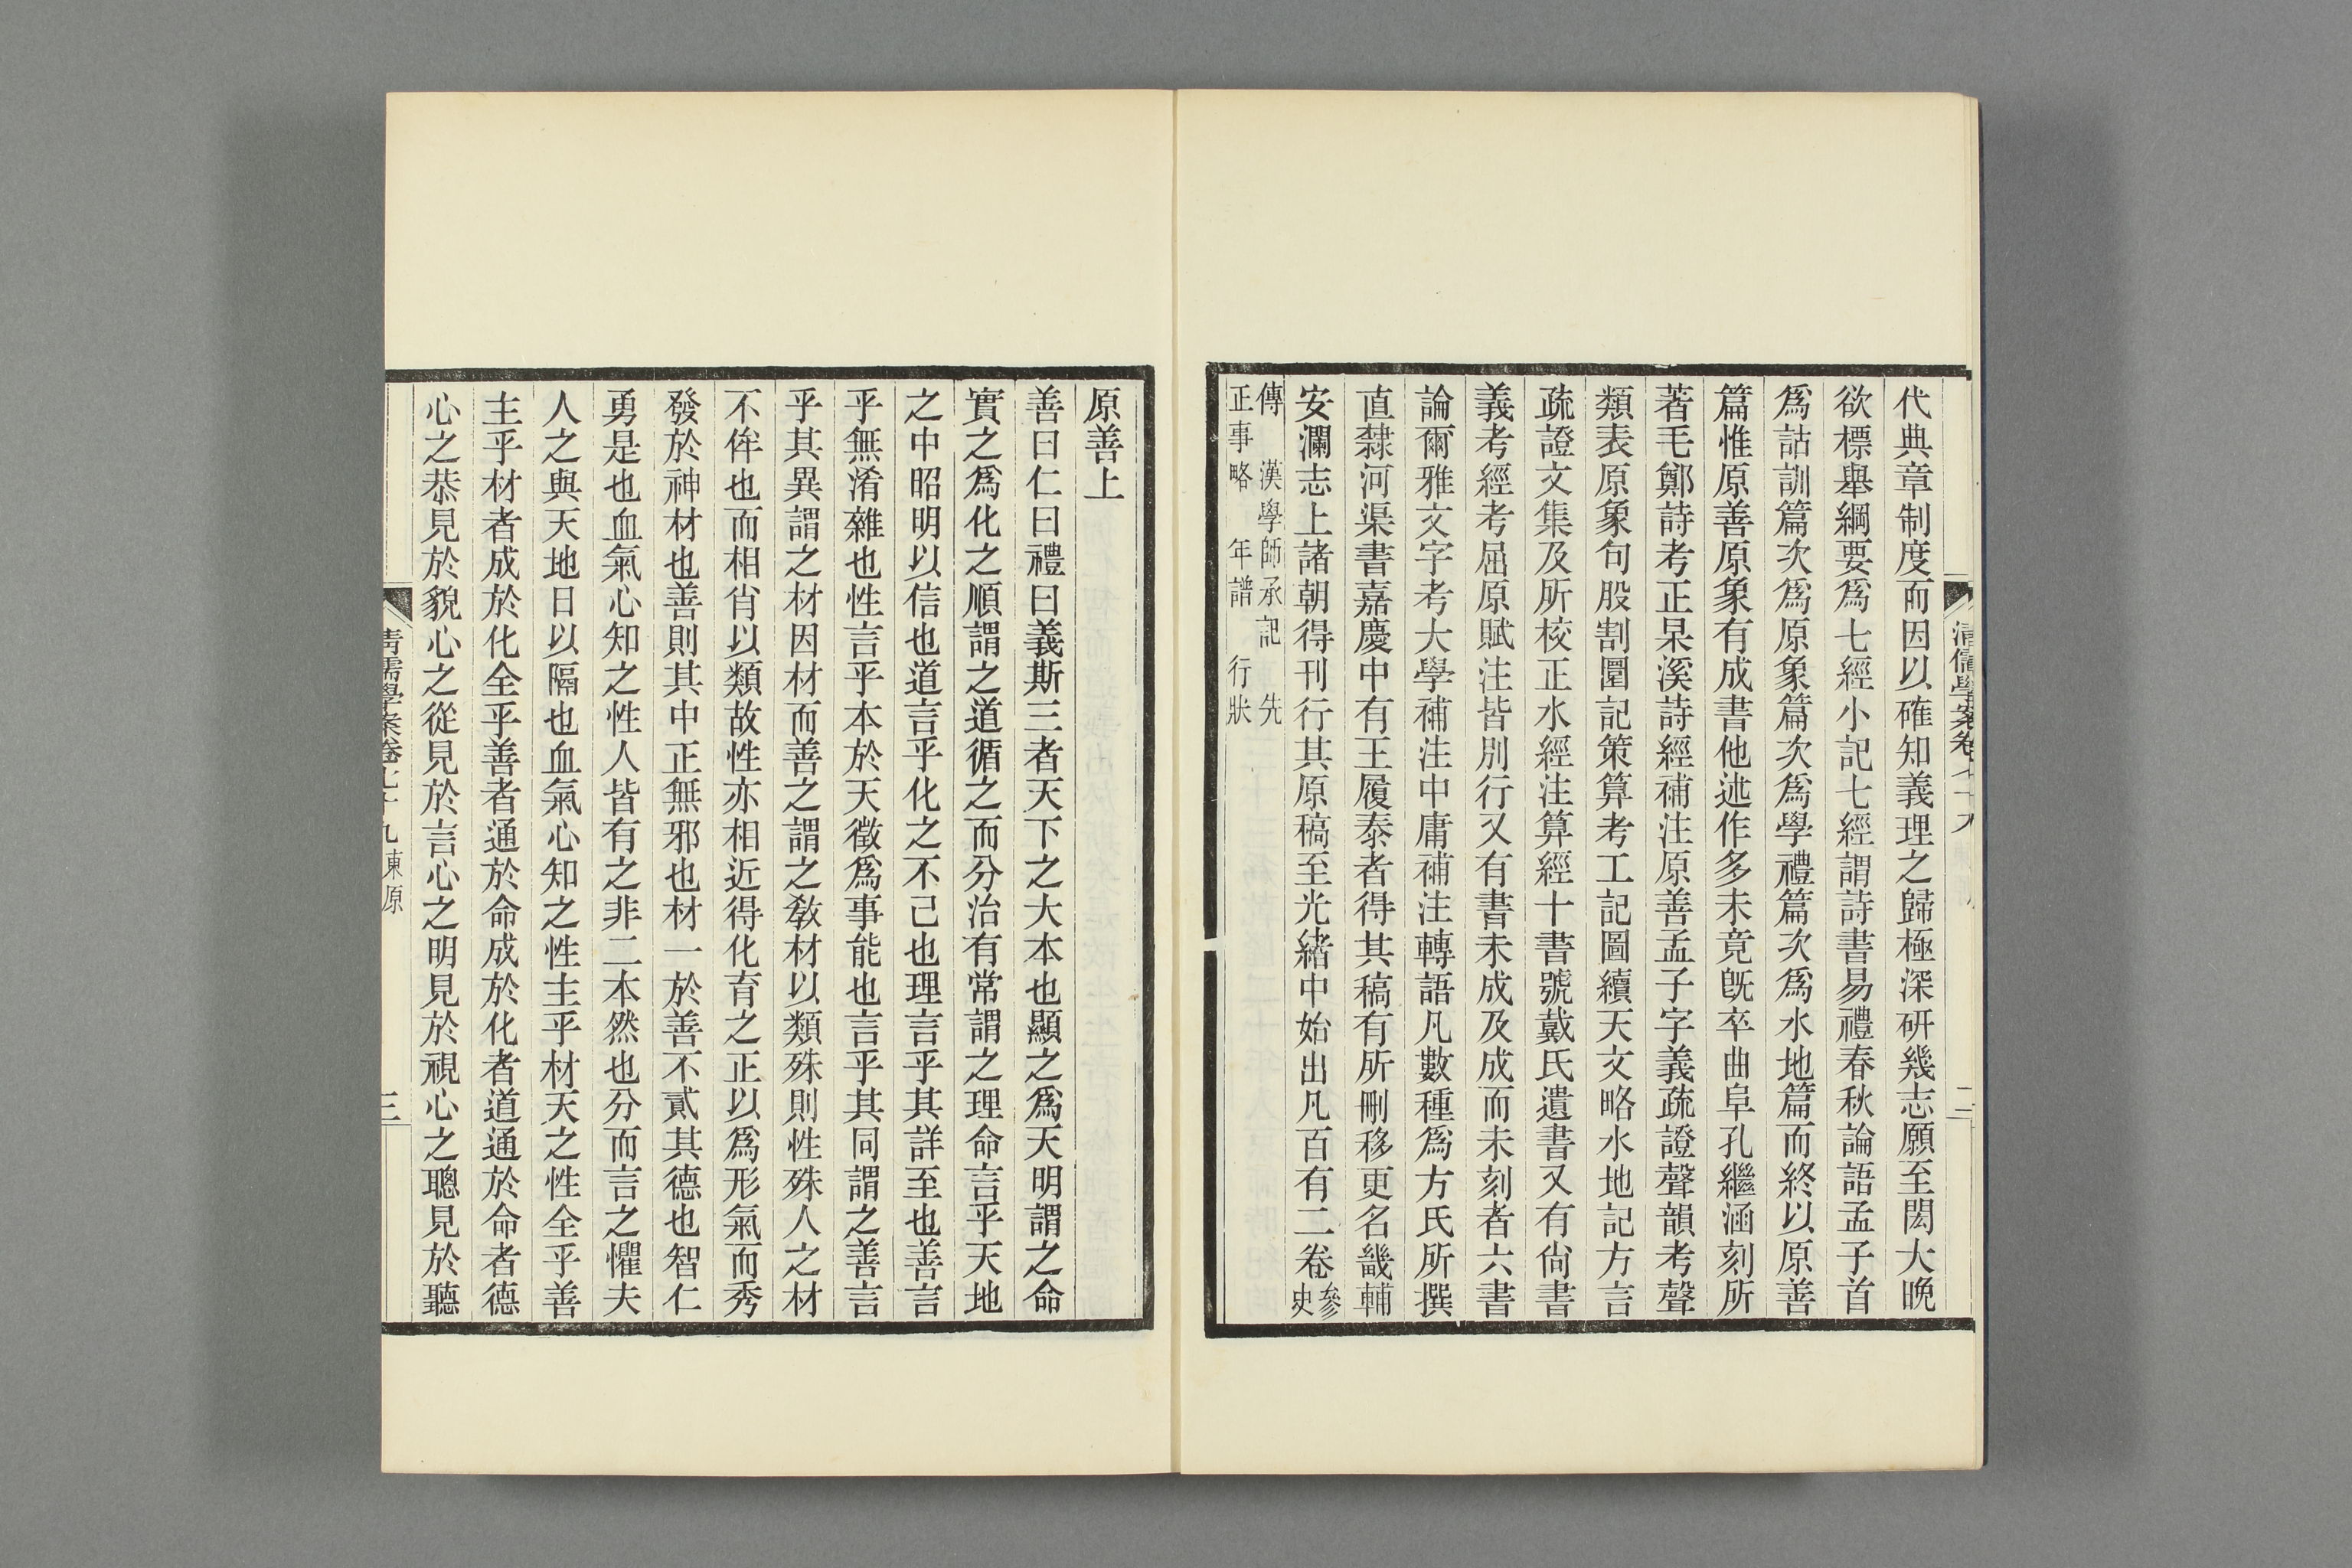 代典章制度而因以確知義理之歸極深研幾志願至閎大晚
欲標舉綱要爲七經小記七經謂詩書易禮春秋論語孟子首
爲詁訓篇次爲原象篇次爲學禮篇次爲水地篇而終以原善
篇惟原善原象有成書他述作多未竟既卒曲阜孔繼涵刻所
著毛鄭詩考正杲溪詩經補注原善孟子字義疏證聲韻考聲
類表原象句股割圜記策算考工記圖續天文略水地記方言
疏證文集及所校正水經注算經十書號戴氏遺書又有尙書
義考經考屈原賦注皆別行又有書未成及成而未刻者六書
論爾雅文字考大學補注中庸補注轉語凡數種爲方氏所撰
直隸河渠書嘉慶中有王履泰者得其稿有所刪移更名畿輔
安瀾志上諸朝得刊行其原稿至光緒中始出凡百有二卷參
史
傳 漢學師承記 先
正事略 年譜 行狀
原善上
善曰仁曰禮曰義斯三者天下之大本也顯之爲天明謂之命
實之爲化之順謂之道循之而分治有常謂之理命言乎天地
之中昭明以信也道言乎化之不已也理言乎其詳至也善言
乎無淆雜也性言乎本於天徵爲事能也言乎其同謂之善言
乎其異謂之材因材而善之謂之敎材以類殊則性殊人之材
不侔也而相肖以類故性亦相近得化育之正以爲形氣而秀
發於神材也善則其中正無邪也材一於善不貳其德也智仁
勇是也血氣心知之性人皆有之非二本然也分而言之懼夫
人之與天地日以隔也血氣心知之性主乎材天之性全乎善
主乎材者成於化全乎善者通於命成於化者道通於命者德
心之恭見於貌心之從見於言心之明見於視心之聰見於聽
清儒學案卷七十九 東原
三